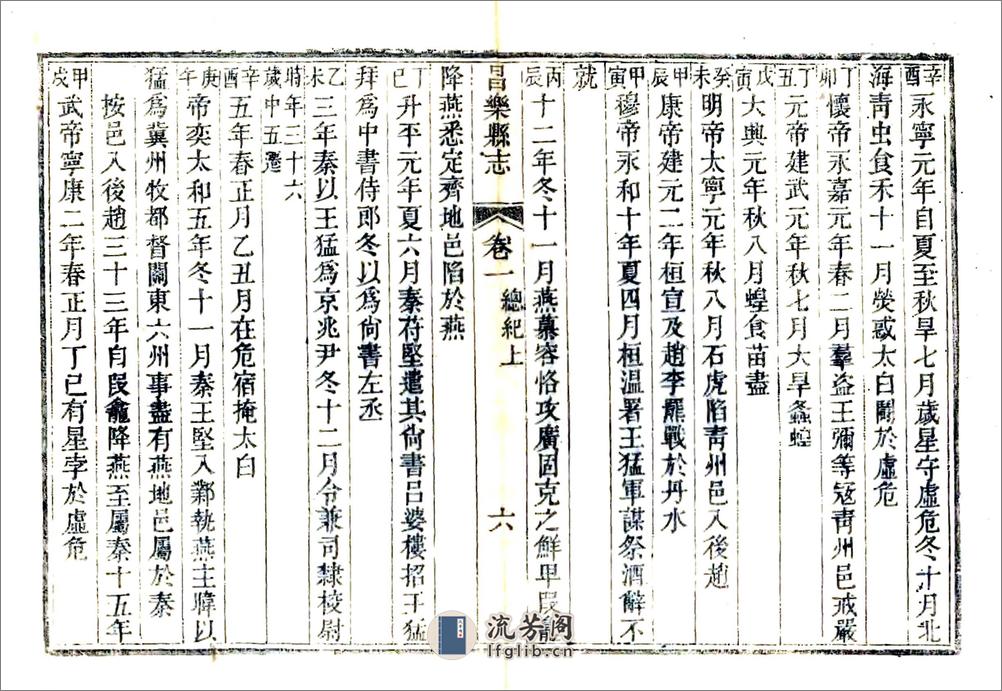 辛酉永寧元年自夏至秋旱七月歲星守虛危冬十月北
海青虫食禾十一月熒惑太白鬭於虛危
丁卯懷帝永嘉元年春二月羣盜王彌等寇靑州邑戒嚴
丁丑元帝建武元年秋七月大旱螽蝗
戊寅大興元年秋八月蝗食苗盡
癸未明帝太寧元年秋八月石虎陷靑州邑入後趙
甲辰康帝建元二年桓宣及趙李羆戰於丹水
甲寅穆帝永和十年夏四月桓温署王猛軍謀祭酒辭不
就
丙辰十二年冬十一月燕慕容恪攻廣固克之鮮卑段龕
昌樂縣志
卷一
總紀上
六
降燕悉定齊地邑陷於燕
丁巳升平元年夏六月秦苻堅遣其尙書呂婆樓招王猛
拜爲中書侍郎冬以爲尙書左丞
乙未三年秦以王猛爲京兆尹冬十二月令兼司隸校尉
時年三十六
歲中五遷
辛酉五年春正月乙丑月在危宿掩太白
庚午帝奕太和五年冬十一月秦王堅入鄴執燕主暐以
猛爲冀州牧都督關東六州事盡有燕地邑屬於秦
按邑入後趙三十三年自段龕降燕至屬秦十五年
甲戌武帝寧康二年春正月丁巳有星孛於虛危
流芳阁
lfglib.cn